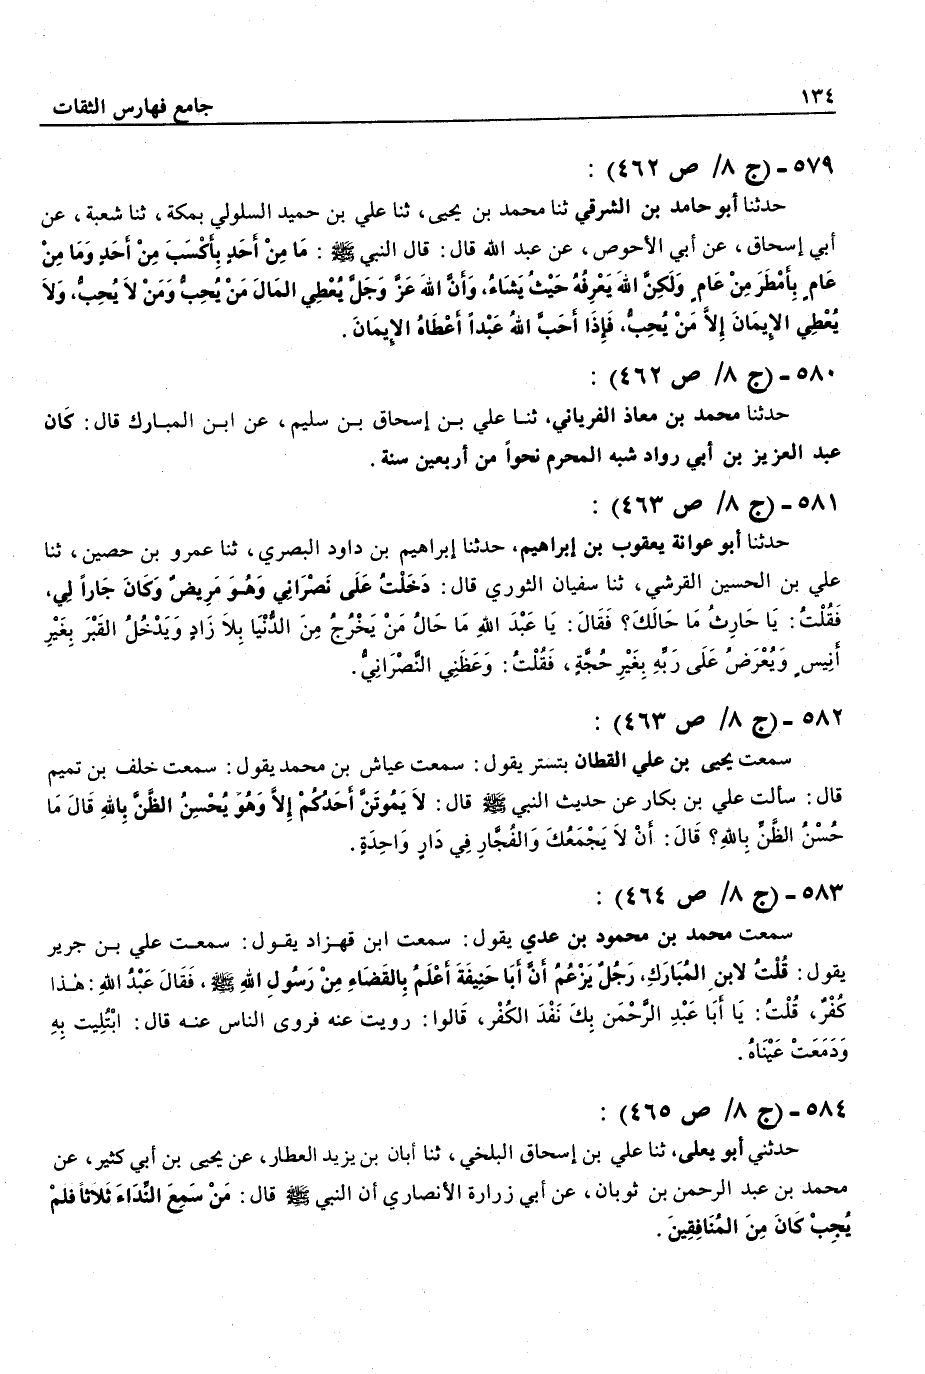 ١٣٤
جامع فهارس الثقات
٥٧٩ ـ (ج ٨/ ص ٤٦٢) :
حدثنا أبو حامد بن الشرقي ثنا محمد بن يحيى، ثنا علي بن حميد السلولي بمكة، ثنا شعبة، عن
أبي إسحاق، عن أبي الأحوص، عن عبد الله قال: قال النبي ﷺ : مَا مِنْ أَحَدٍ بِأَكْسَبَ مِنْ أَحَدٍ وَمَا مِنْ
عَامٍ بِأَمْطَرَ مِنْ عَامٍ وَلَكِنَّ اللهَ يَعْرِفُهُ حَيْثُ يَشَاءُ، وَأَنَّ اللهَ عَزَّ وَجَلَّ يُعْطِي المَالَ مَنْ يُحِبُّ وَمَنْ لاَ يُحِبُّ، وَلاَ
يُعْطِي الإِيمَانَ إِلاَّ مَنْ يُحِبُّ، فَإِذَا أَحَبَّ اللهُ عَبْداً أَعْطَاهُ الإِيمَانَ.
٥٨٠ ـ (ج ٨/ ص ٤٦٢) :
حدثنا محمد بن معاذ الفرياني، ثنا علي بن إسحاق بن سليم، عن ابن المبارك قال: كَان
عبد العزيز بن أبي رواد شبه المحرم نحواً من أربعين سنة.
٥٨١ ـ (ج ٨/ ص ٤٦٣) :
حدثنا أبو عوانة يعقوب بن إبراهيم، حدثنا إبراهيم بن داود البصري، ثنا عمرو بن حصين، ثنا
علي بن الحسين القرشي، ثنا سفيان الثوري قال: دَخَلْتُ عَلَى نَصْرَانِي وَهُوَ مَرِيضٌ وَكَانَ جَاراً لِي،
فَقُلْتُ: يَا حَارِثُ مَا حَالَكَ؟ فَقَالَ: يَا عَبْدَ اللهِ مَا حَالُ مَنْ يَخْرُجُ مِنَ الدُّنْيَا بِلاَ زَادٍ وَيَدْخُلُ القَبْرَ بِغَيْرِ
أَنِيسٍ وَيُعْرَضُ عَلَى رَبِّهِ بِغَيْرِ حُجَّةٍ، فَقُلْتُ: وَعَظَنِي النَّصْرَانِيُّ.
٥٨٢ ـ (ج ٨/ ص ٤٦٣) :
سمعت يحيى بن علي القطان بتستر يقول: سمعت عياش بن محمد يقول: سمعت خلف بن تميم
قال: سألت علي بن بكار عن حديث النبي ﷺ قال: لاَ يَمُوتَنَّ أَحَدُكُمْ إِلاَّ وَهُوَ يُحْسِنُ الظَّنَّ بِاللهِ قَالَ مَا
حُسْنُ الظَّنِّ بِاللهِ؟ قَالَ: أَنْ لاَ يَجْمَعُكَ وَالفُجَّارِ فِي دَارٍ وَاحِدَةٍ.
٥٨٣ ـ (ج ٨/ ص ٤٦٤) :
سمعت محمد بن محمود بن عدي يقول: سمعت ابن قهزاد يقول: سمعت علي بن جرير
يقول: قُلْتُ لابنِ المُبَارَكِ، رَجُلٌ يَزْعُمُ أَنَّ أَبَا حَنِيفَةَ أَعْلَمُ بِالقَضَاءِ مِنْ رَسُولِ اللهِ ﷺ، فَقَالَ عَبْدُ اللهِ: هٰذا
كُفْرٌ، قُلْتُ: يَا أَبَا عَبْدِ الرَّحْمَنِ بِكَ نَفْذَ الكُفْر، قَالوا: رويت عنه فروى الناس عنه قال: ابْتُلِيت بِهِ
وَدَمَعَتْ عَيْنَاهُ.
٥٨٤ ـ (ج ٨/ ص ٤٦٥) :
حدثني أبو يعلى، ثنا علي بن إسحاق البلخي، ثنا أبان بن يزيد العطار، عن يحيى بن أبي كثير، عن
محمد بن عبد الرحمن بن ثوبان، عن أبي زرارة الأنصاري أن النبي ﷺ قال: مَنْ سَمِعَ النِّدَاءَ ثَلاَثاً فلمْ
يُجِبْ كَانَ مِنَ المُنَافِقِينَ.